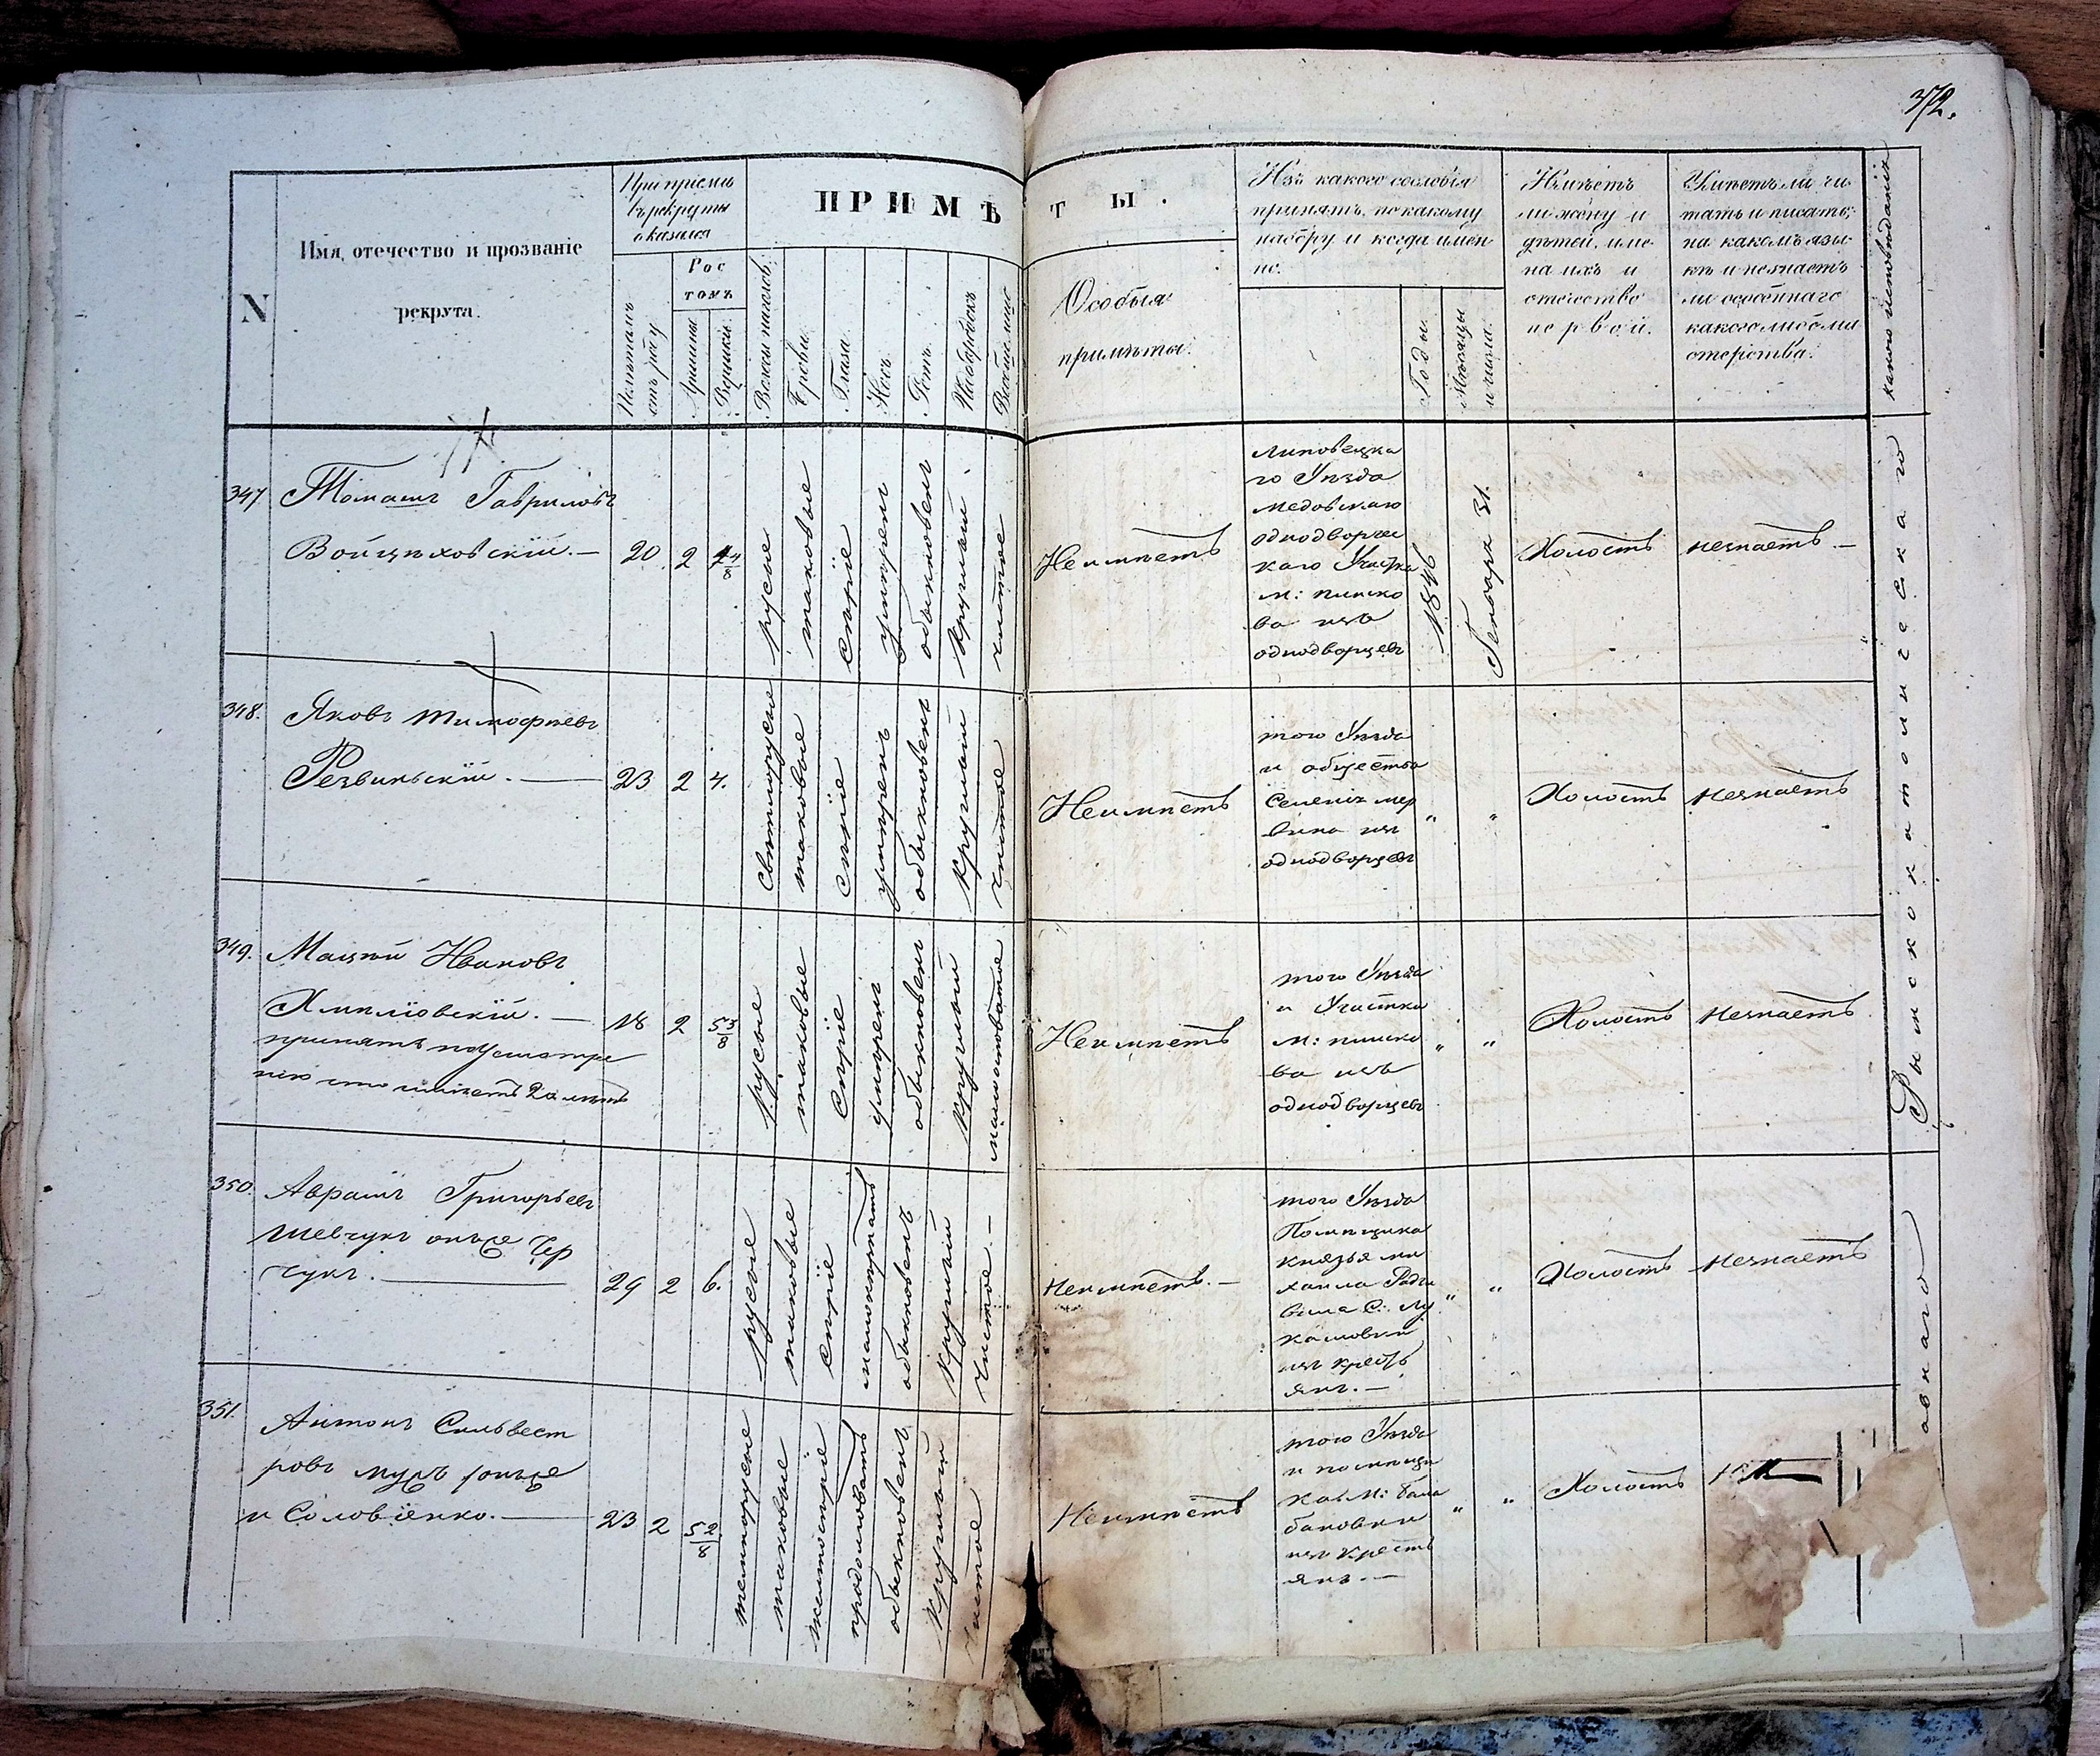 372.
N
Имя, отечество и прозваніе
рекрута.
При пріемѣ
въ рекруты
оказался
По лѣтамъ
отъ роду
Рос
томъ
Аршины
Вершки
ПРИМѢ
ТЫ.
Волосы на голов:
Брови
Глаза
Носъ
Ротъ
Подбородокъ
Вообще лице
Особыя
примѣты.
Изъ какого сословія
принятъ, по какому
набору и когда имен-
но.
Годы
Мѣсяцы
и числа.
Имѣетъ
ли жену и
дѣтей, име-
на ихъ и
отечество
первой.
Умѣетъ ли чи-
тать и писать;
на какомъ язы-
кѣ и не знаетъ
ли особеннаго
какого либо ма
стерства.
какого исповѣданія
347
Томашъ Гавриловъ
Войцѣховскій. —
20. 2 4 4/8
русые
таковые
сѣріе
умѣренъ
обыкновенъ
круглый
чистое
Неимѣетъ
Липовецка
го Уѣзда
медовскаго
однодворчес
каго Участка
м: писко
ва изъ
однодворцевъ
1846
Генваря 31.
Холостъ
незнаетъ —
348.
Яковъ Тимофѣевъ
Резвинскій. —
23 2 4.
свѣтлорусые
таковые
сѣріе
умѣренъ
обыкновенъ
круглый
чистое
Неимѣетъ
того Уѣзда
и общества
Селенія мер
вина изъ
однодворцевъ
" "
Холостъ
незнаетъ
349.
Мацѣй Ивановъ
Хмѣліовскій. —
принятъ поусмотре
нію что имѣетъ 20 лѣтъ
18 2 5 3/8
русые
таковые
сѣріе
умѣренъ
обыкновенъ
круглый
малоосповатое
Неимѣетъ
того Уѣзда
и Участка
м: писко
ва изъ
однодворцевъ
" "
Холостъ
незнаетъ
350.
Аврамъ Григорьевъ
Шевчукъ онъже Чер
чукъ. —
29 2 6.
русые
таковые
сѣріе
обыкновенъ
круглый
чистое. —
неимѣетъ. —
того Уѣзда
Помѣщика
князья ми
хаила Радзи
вила С: Лу
кашовки
изъ кресть
янъ. —
" "
Холостъ
незнаетъ
351.
Антонъ Сильвест
ровъ онъже
и Соловіенко. —
23 2 5 2/8
темнорусые
таковые
желтосѣріе
продолговатъ
обыкновенъ
круглый
чистое
Неимѣетъ
того Уѣзда
и помѣщи
ка м: бала
бановки
изъ крестъ
янъ. —
" "
Холостъ
Римскокатолическаго